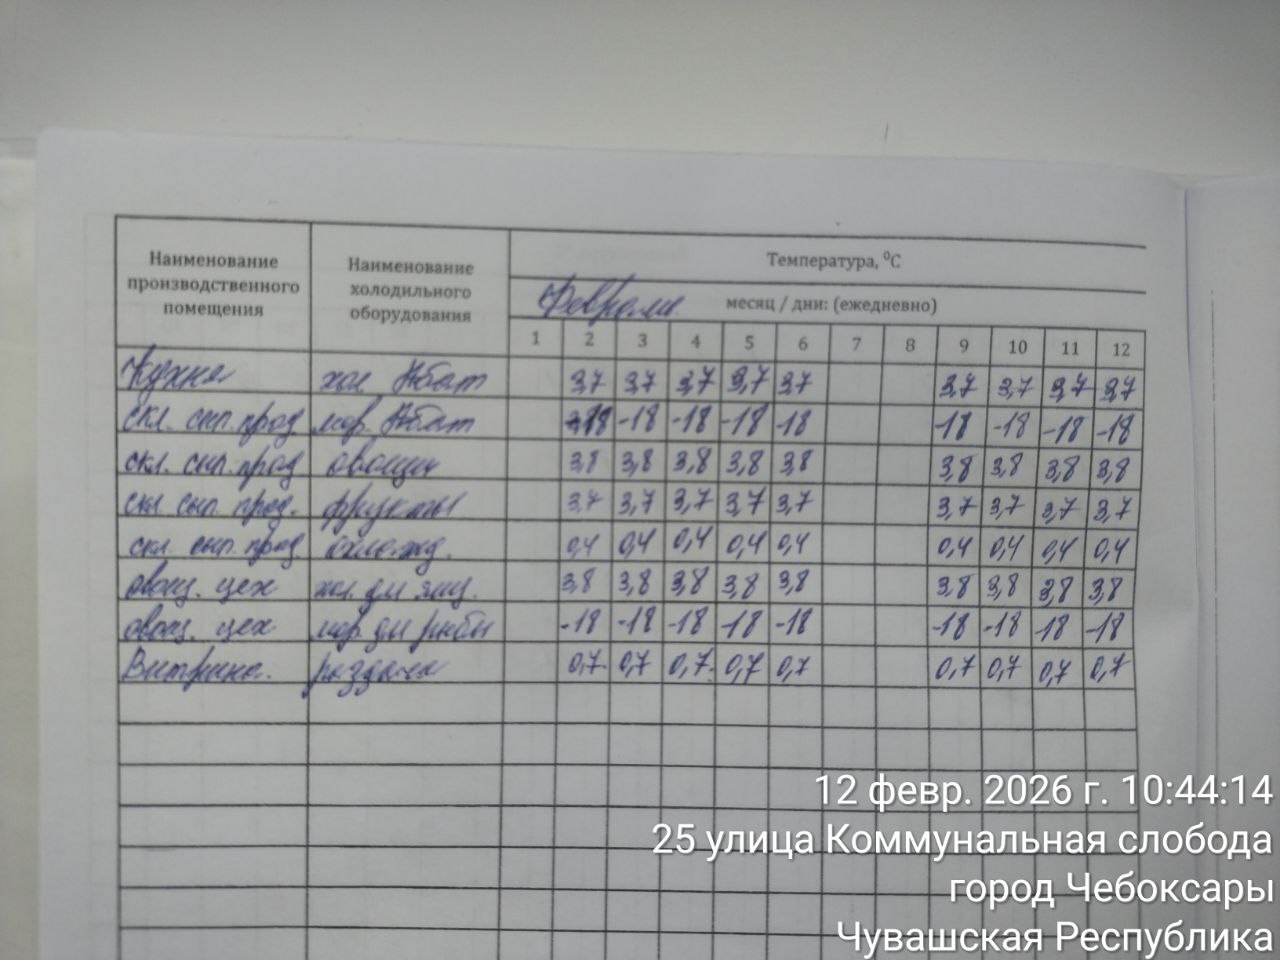 Наименование производственного помещения Наименование холодильного оборудования Температура, ⁰С
Февраль месяц / дни: (ежедневно)
1 2 3 4 5 6 7 8 9 10 11 12
Кухня хол. 3,7 3,7 3,7 3,7 3,7 3,7 3,7 3,7 3,7
скл. сып. прод. мор. -18 -18 -18 -18 -18 -18 -18 -18 -18
скл. сып. прод овощи 3,8 3,8 3,8 3,8 3,8 3,8 3,8 3,8 3,8
скл. сып. прод. фрукты 3,7 3,7 3,7 3,7 3,7 3,7 3,7 3,7 3,7
скл. сып. прод. охлажд. 0,4 0,4 0,4 0,4 0,4 0,4 0,4 0,4 0,4
овощ. цех хол. для яиц. 3,8 3,8 3,8 3,8 3,8 3,8 3,8 3,8 3,8
овощ. цех мор. для рыбы -18 -18 -18 -18 -18 -18 -18 -18 -18
Витрина. раздача 0,7 0,7 0,7 0,7 0,7 0,7 0,7 0,7 0,7
12 февр. 2026 г. 10:44:14
25 улица Коммунальная слобода
город Чебоксары
Чувашская Республика